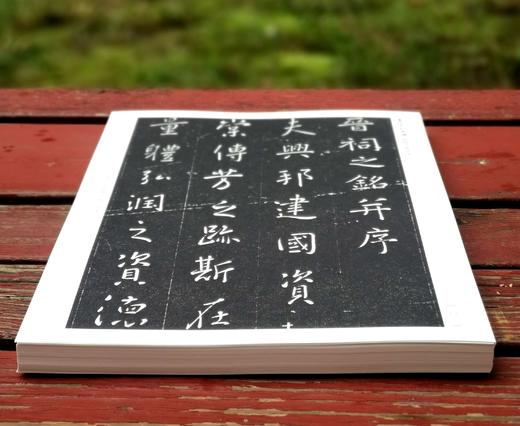 晉祠之銘并序
夫興邦建國資
崇傳芳之跡斯在
量體弘潤之資德